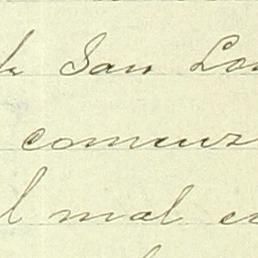 San Lo
comenz
l mal e